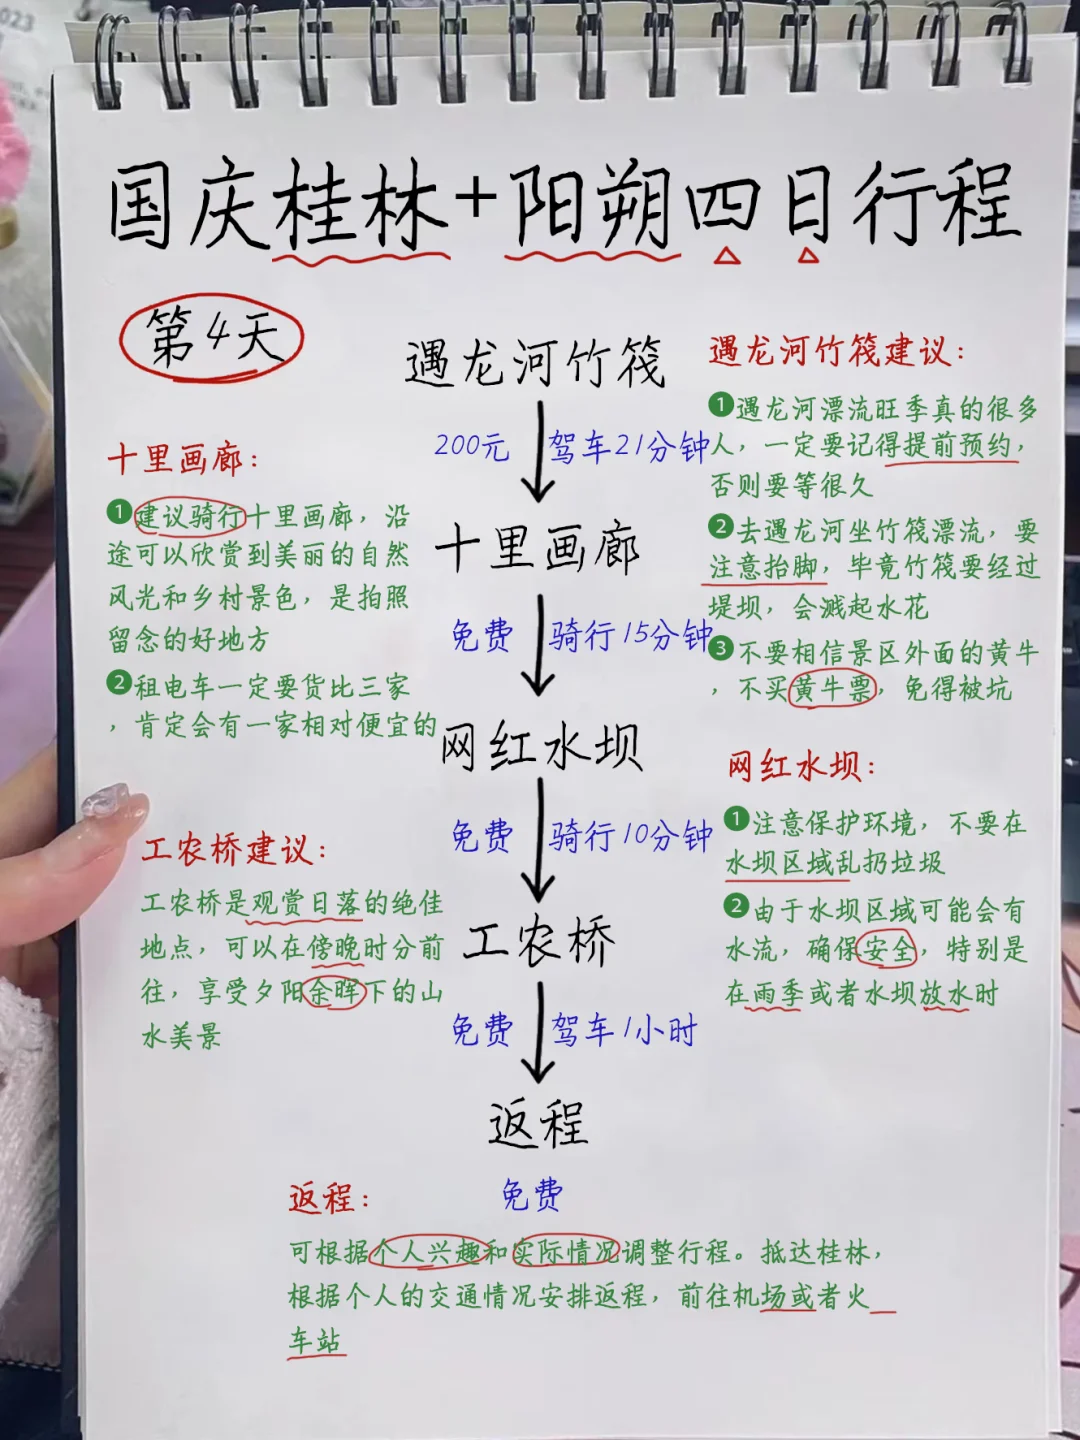 023
国庆桂林+阳朔四日行程
第4天
遇龙河竹筏
200元 驾车21分钟
十里画廊
免费 骑行15分钟
网红水坝
免费 骑行10分钟
工农桥
免费 驾车1小时
返程
免费
十里画廊:
❶建议骑行十里画廊,沿
途可以欣赏到美丽的自然
风光和乡村景色,是拍照
留念的好地方
❷租电车一定要货比三家
,肯定会有一家相对便宜的
工农桥建议:
工农桥是观赏日落的绝佳
地点,可以在傍晚时分前
往,享受夕阳余晖下的山
水美景
遇龙河竹筏建议:
❶遇龙河漂流旺季真的很多
人,一定要记得提前预约,
否则要等很久
❷去遇龙河坐竹筏漂流,要
注意抬脚,毕竟竹筏要经过
堤坝,会溅起水花
❸不要相信景区外面的黄牛
,不买黄牛票,免得被坑
网红水坝:
❶注意保护环境,不要在
水坝区域乱扔垃圾
❷由于水坝区域可能会有
水流,确保安全,特别是
在雨季或者水坝放水时
返程:
可根据个人兴趣和实际情况调整行程。抵达桂林,
根据个人的交通情况安排返程,前往机场或者火
车站